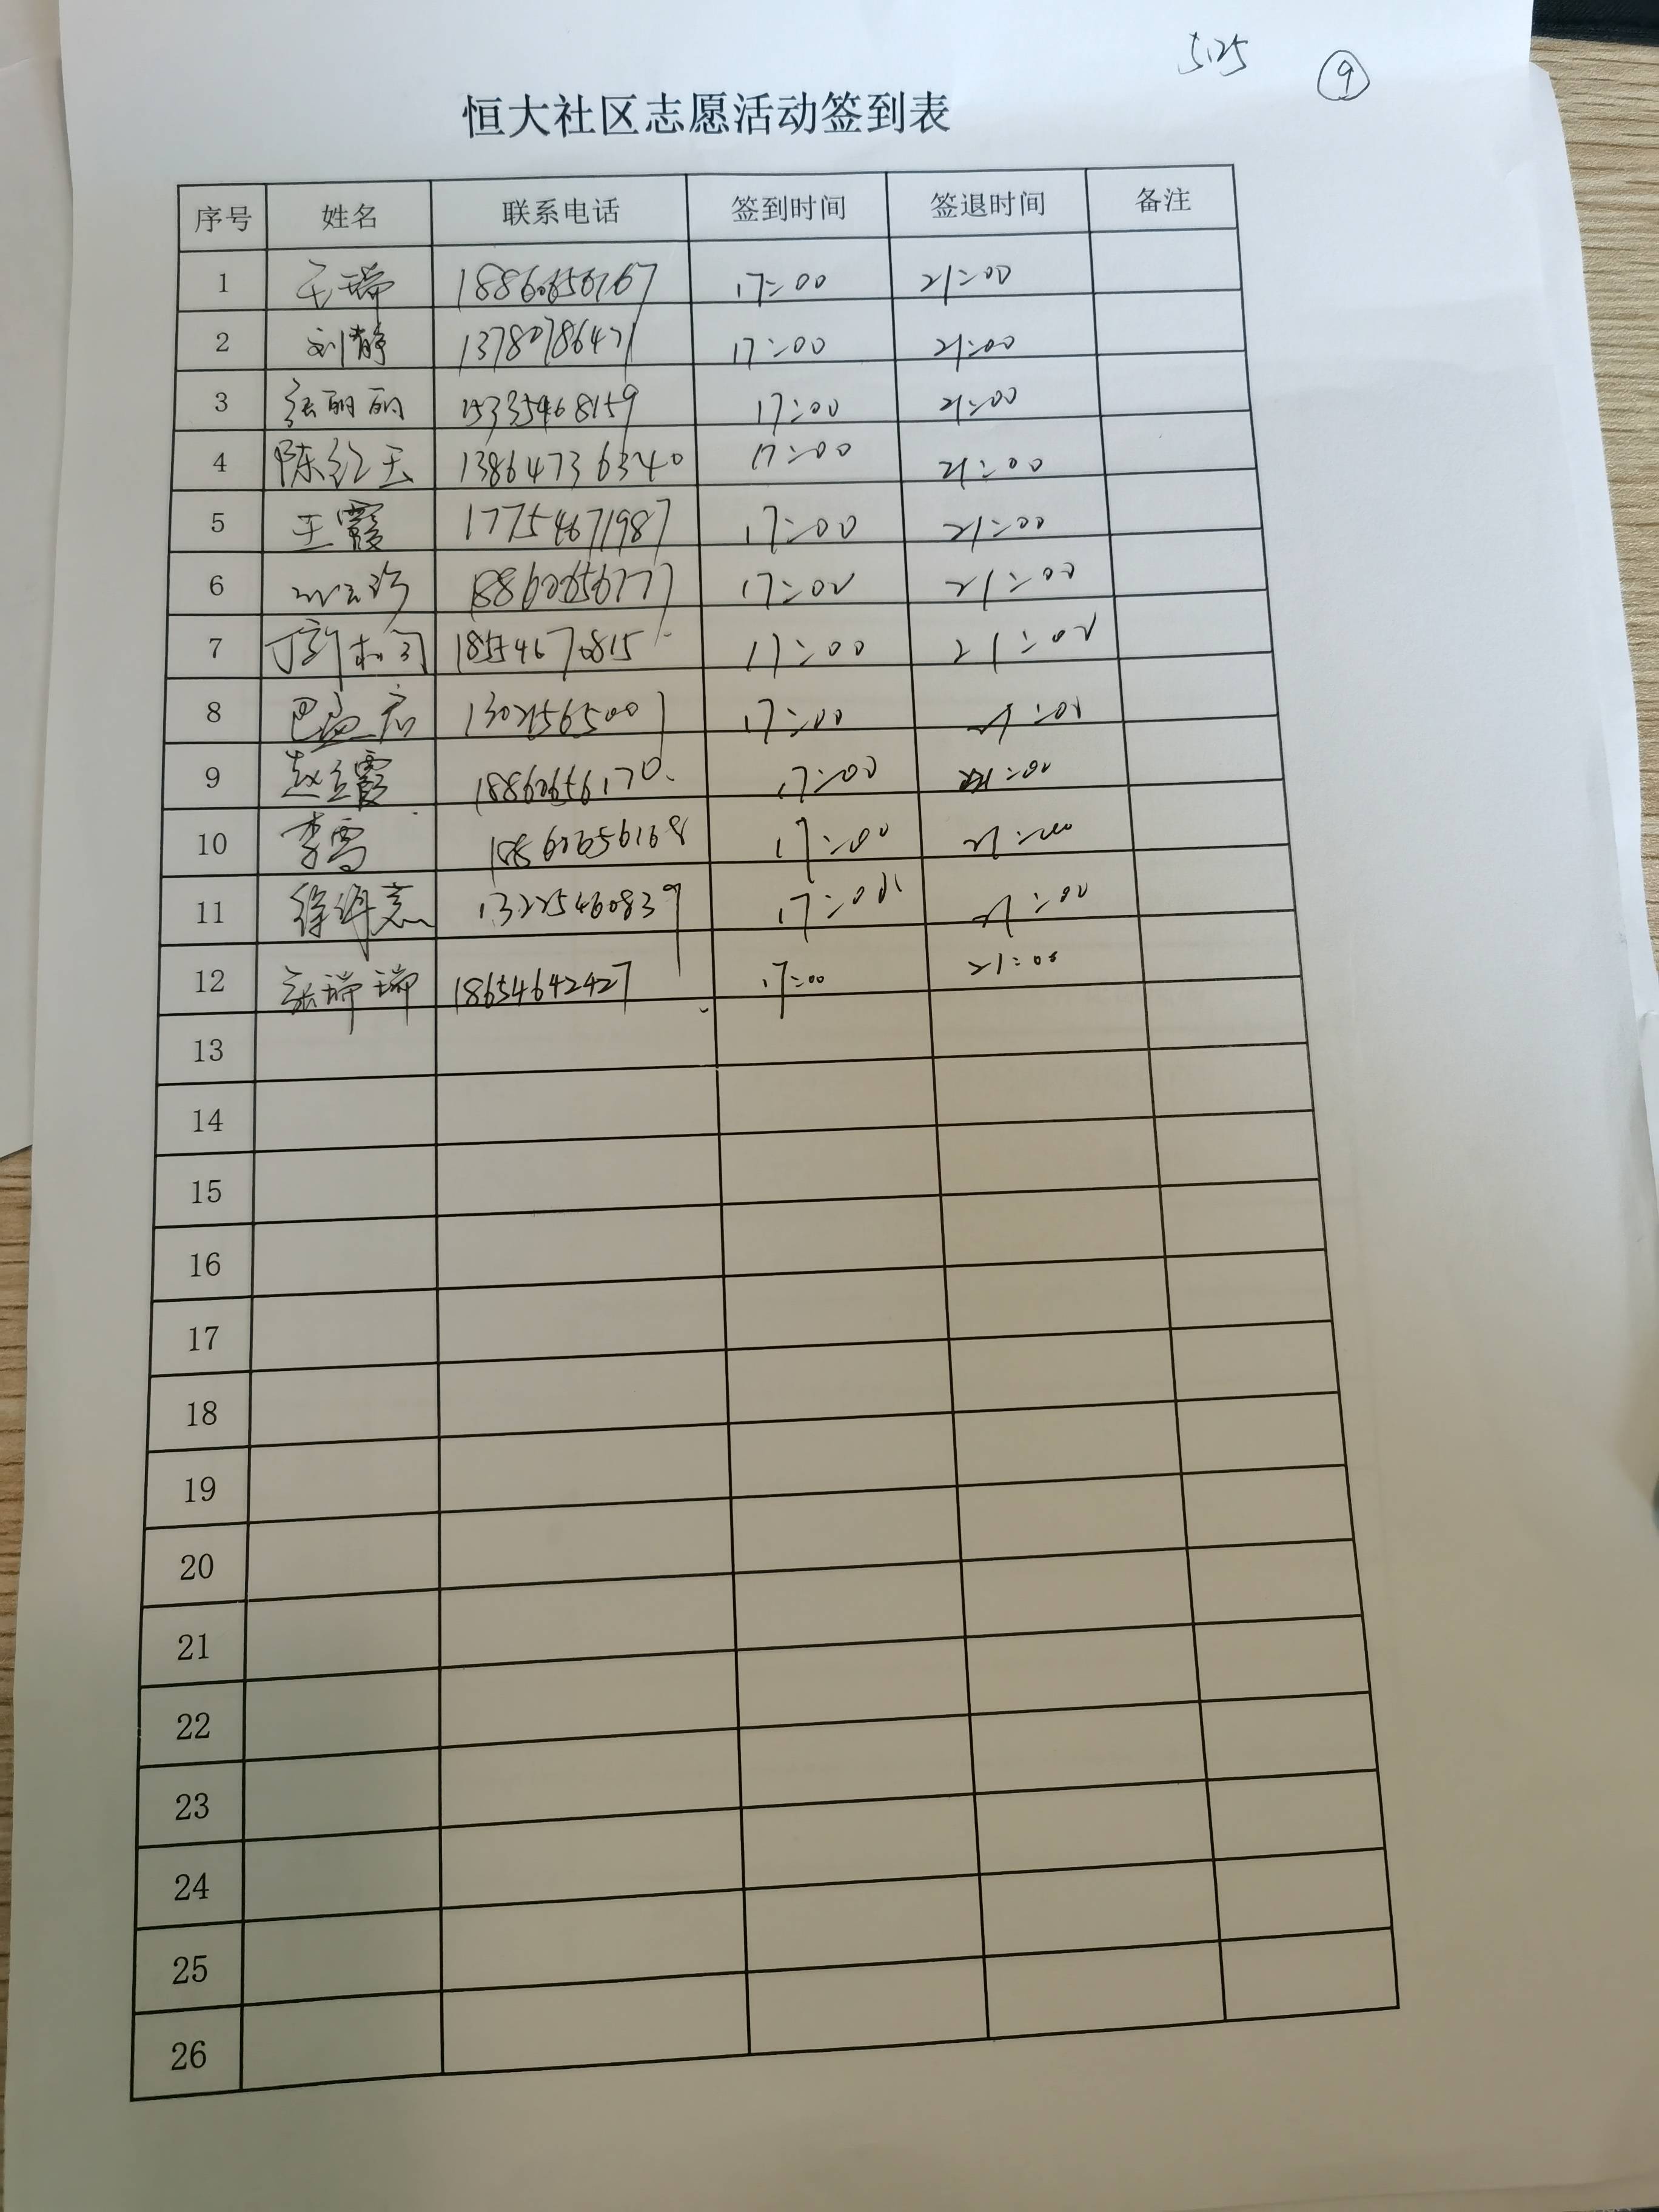 5.25 ⑨
恒大社区志愿活动签到表
序号 姓名 联系电话 签到时间 签退时间 备注
1 王瑞 18860656767 17:00 21:00
2 刘静 13780786471 17:00 21:00
3 张丽丽 15335468159 17:00 21:00
4 陈红玉 13864736340 17:00 21:00
5 王霞 17754671987 17:00 21:00
6 17:00 21:00
7 17:00 21:00
8 17:00 21:00
9 赵立霞 18860656170 17:00 21:00
10 李雪 18860656168 17:00 21:00
11 13225460839 17:00 21:00
12 张瑞瑞 18654642427 17:00 21:00
13
14
15
16
17
18
19
20
21
22
23
24
25
26